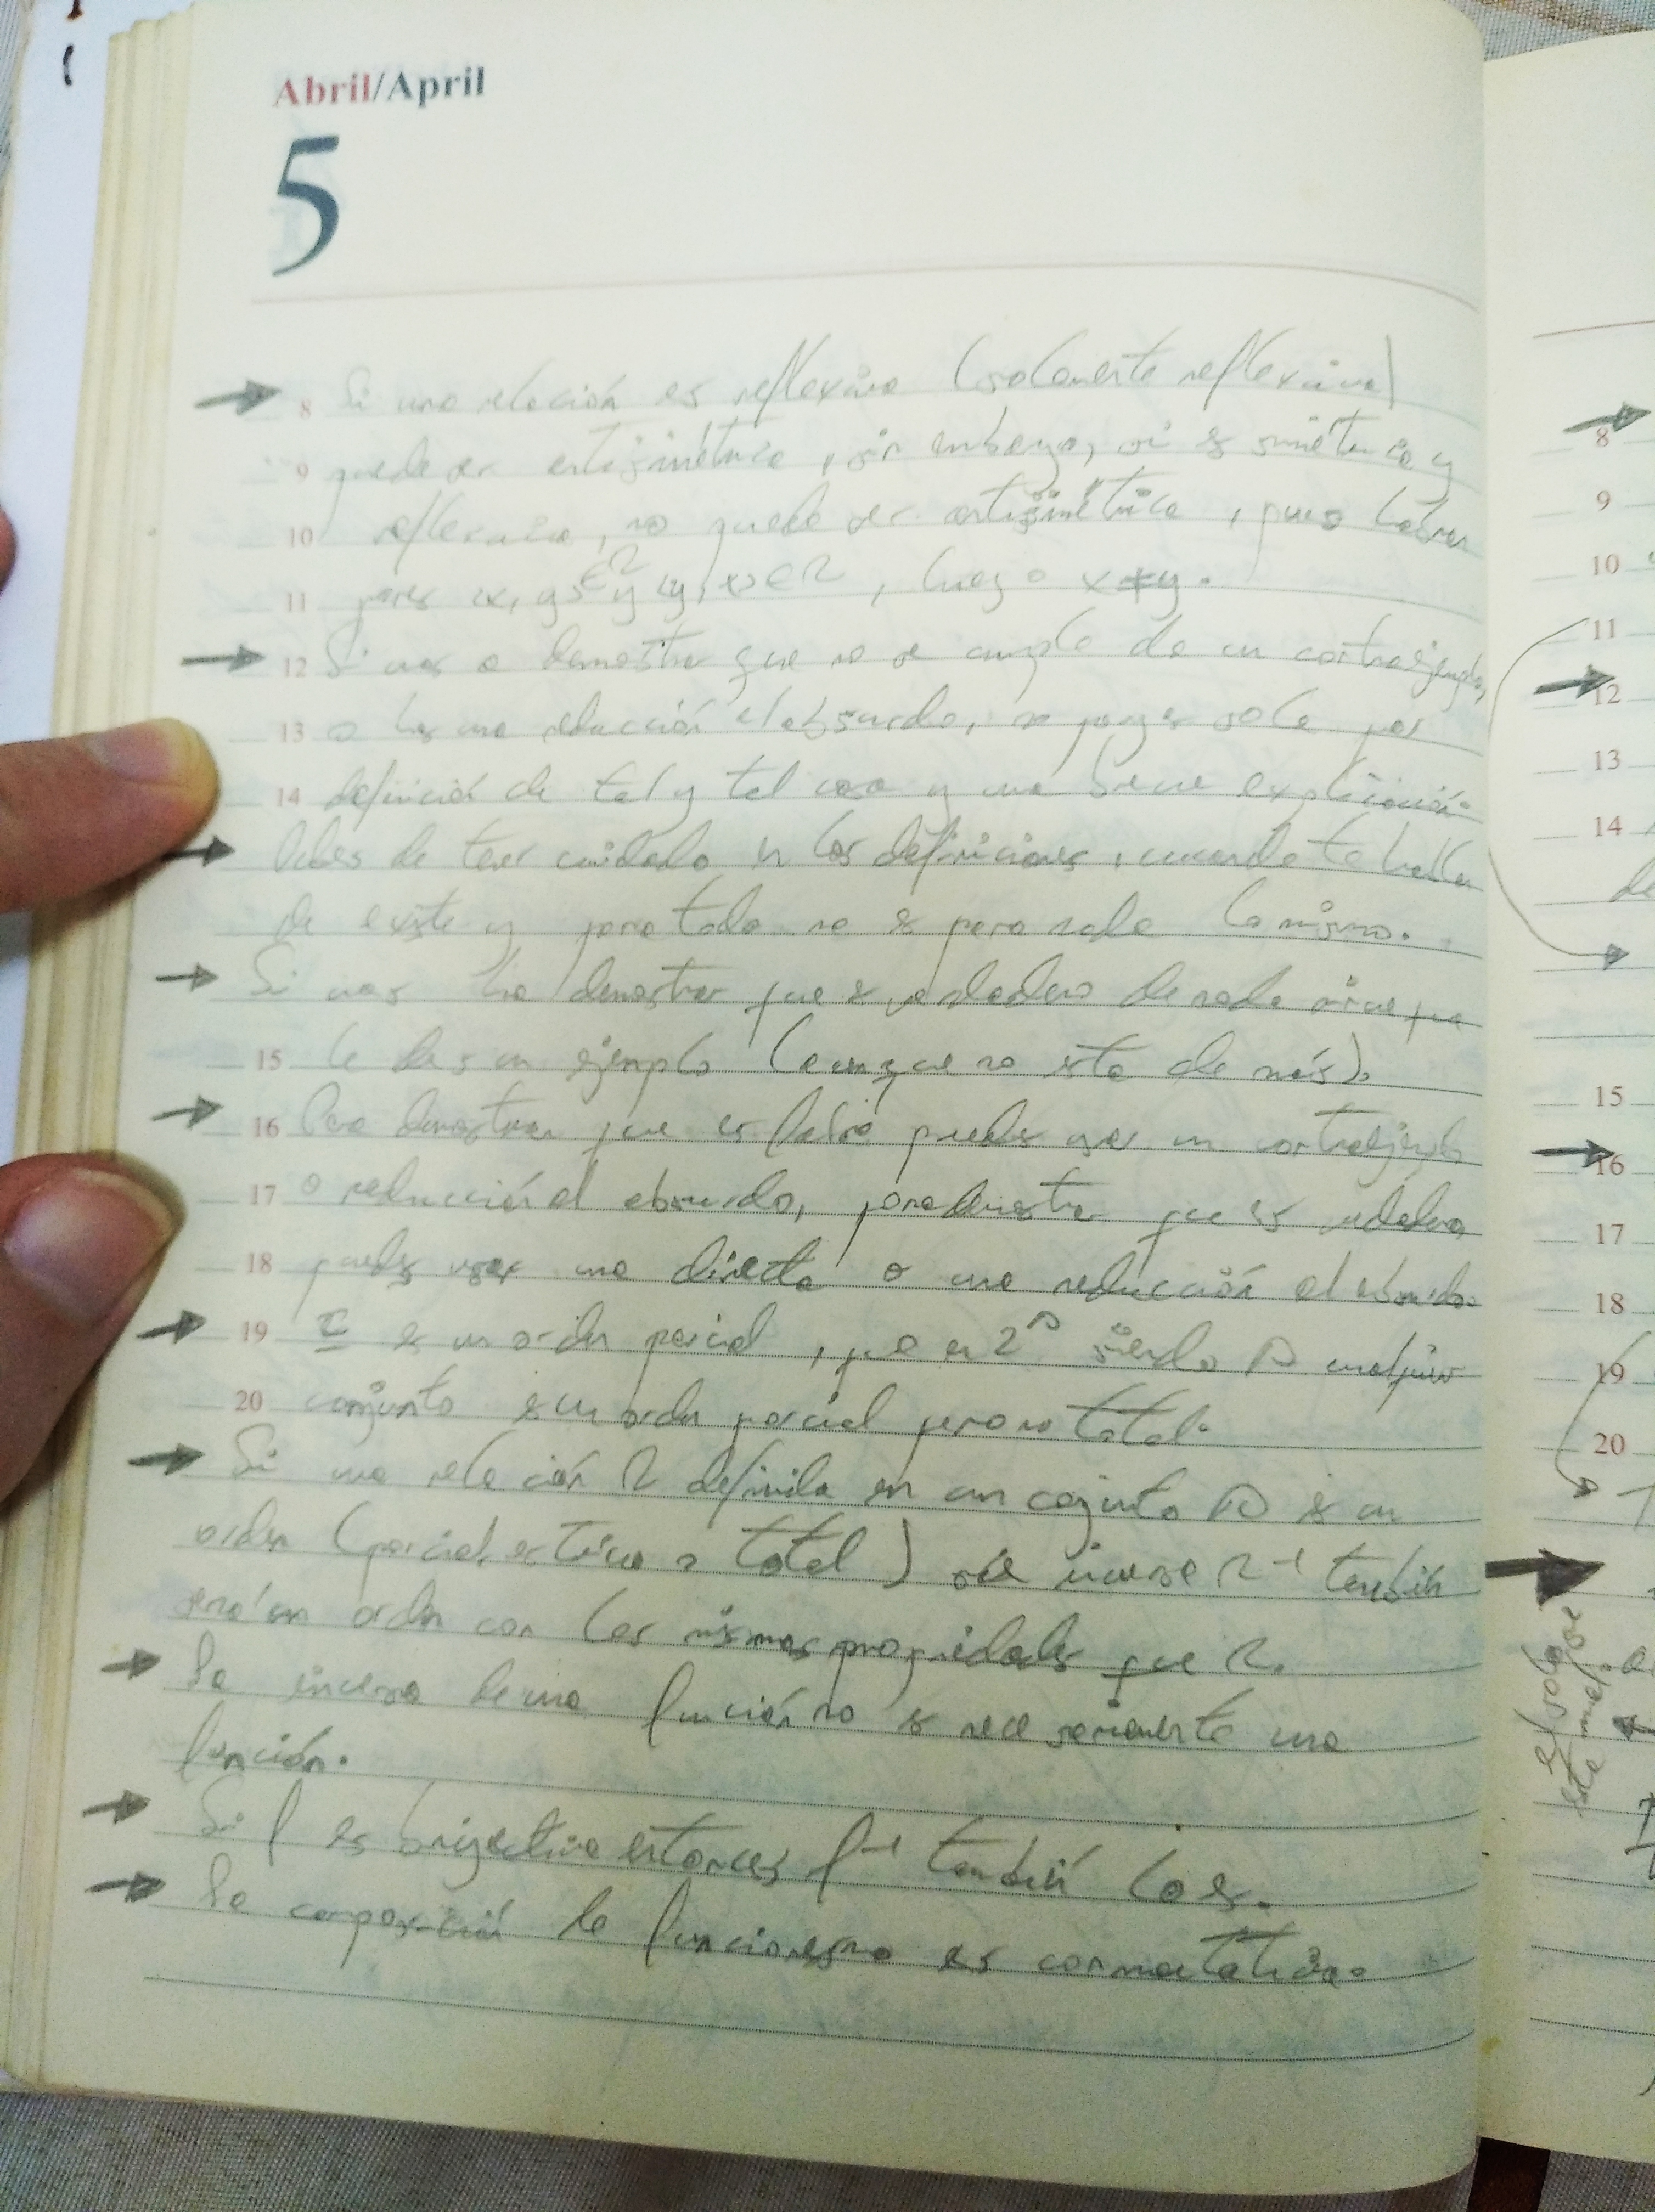 Abril/April
5
8 Si una relación es reflexiva (solamente reflexiva)
9 puede ser antisimétrica, sin embargo, si es simétrica y
10 reflexiva, no puede ser antisimétrica, pues habrán
11 pares <x, y> ∈ R y <y, x> ∈ R, luego x ≠ y.
12 Si vas a demostrar que no se cumple da un contraejemplo,
13 o haz una reducción al absurdo, no pongas solo por
14 definición de tal y tal cosa y una breve explicación.
Debes de tener cuidado en las definiciones, cuando te hablan
de existe y para todo no es para nada lo mismo.
Si vas ha demostrar que es verdadero de nada sirve que
15 le des un ejemplo (aunque no esta de más).
16 Para demostrar que es falso puedes usar un contraejemplo
17 o reducción al absurdo, para demostrar que es verdadero
18 puedes usar una directa o una reducción al absurdo.
19 ⊆ es un orden parcial, que en 2^A siendo A cualquier
20 conjunto es un orden parcial pero no total.
Si una relación R definida en un conjunto A es un
orden (parcial, estricto o total) su inversa R⁻¹ también
será un orden con las mismas propiedades que R.
La inversa de una función no es necesariamente una
función.
Si f es biyectiva entonces f⁻¹ también lo es.
La composición de funciones no es conmutativa.
8
9
10
11
12
13
14
de
15
16
17
18
19
20